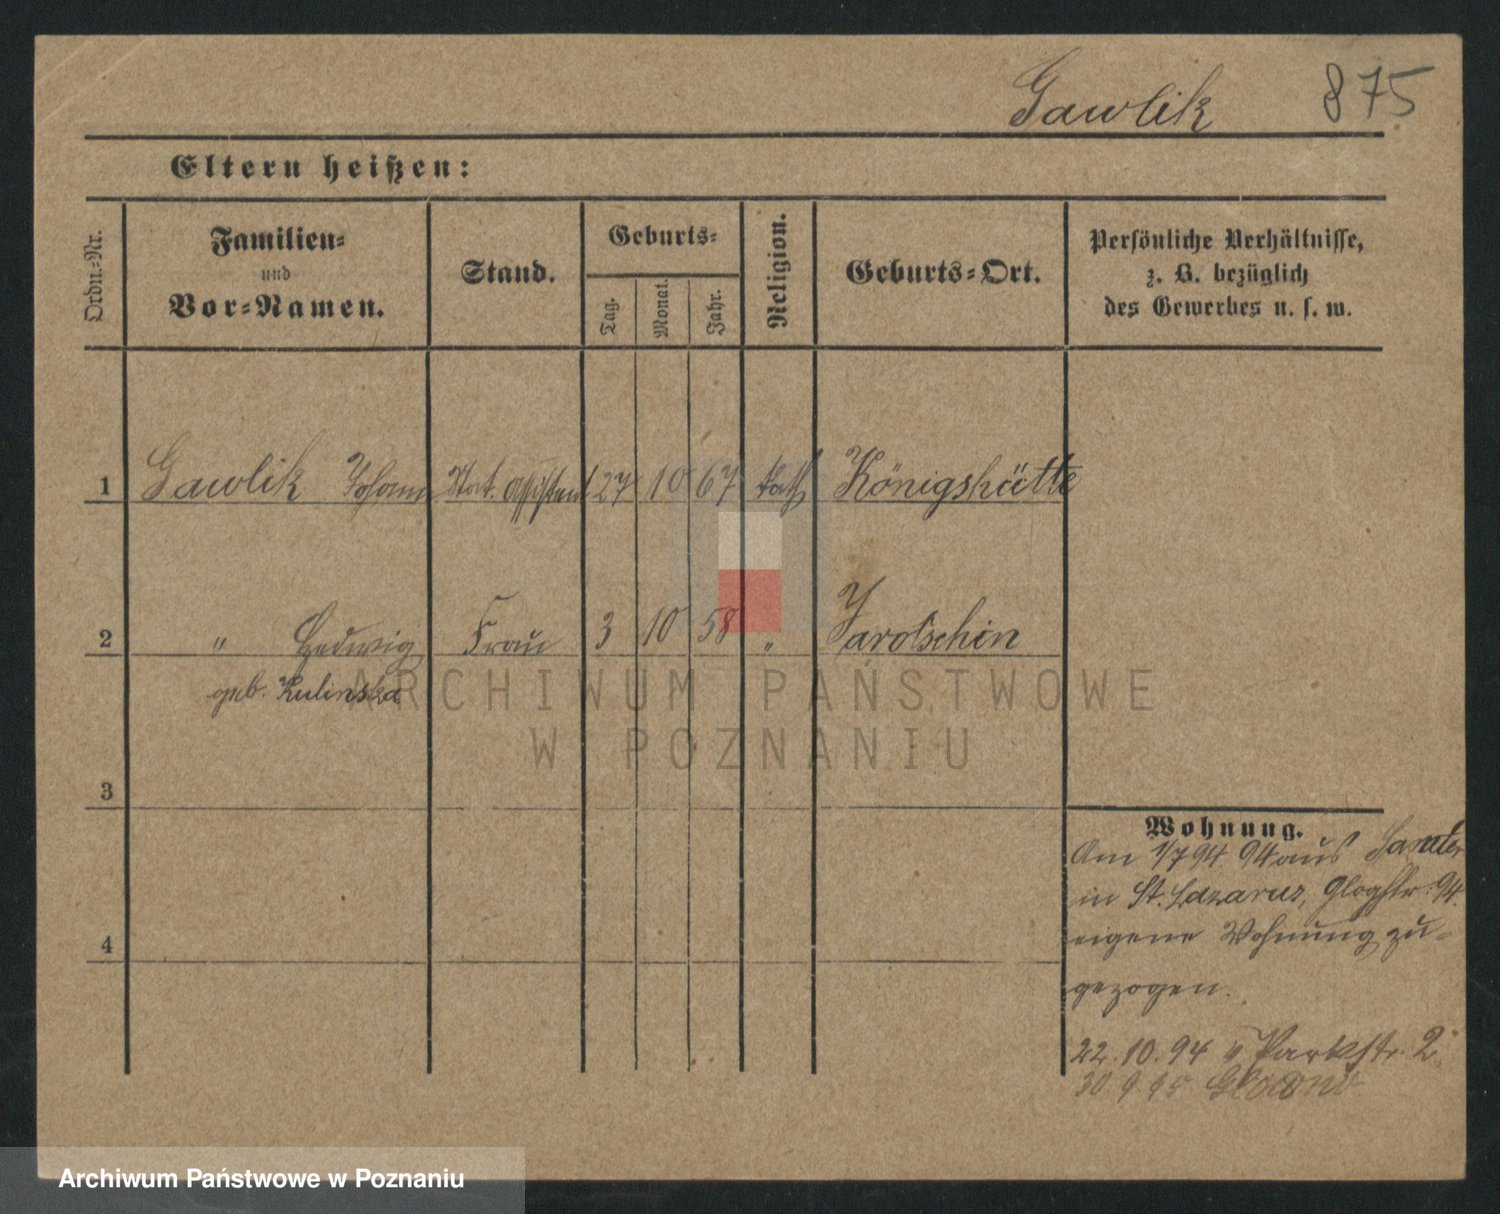 Gawlik 875
Eltern heißen:
Ordn.-Nr.
Familien-
und
Vor-Namen.
Stand.
Geburts-
Tag.
Monat.
Jahr.
Religion.
Geburts-Ort.
Persönliche Verhältnisse,
z. B. bezüglich
des Gewerbes u. s. w.
1 Gawlik Johann Stat. Assistent 27 10 67 kath Königshütte
2 " Hedwig Frau 3 10 58 " Jarotschin
geb. Kulinska
ARCHIWUM PAŃSTWOWE
W POZNANIU
3
Wohnung.
Am 1/7 94 94 aus Samter
in St. Lazarus, Glogstr. 94.
4
eigene Wohnung zu-
gezogen.
22.10.94 Parkstr. 2.
30.9.95
Archiwum Państwowe w Poznaniu